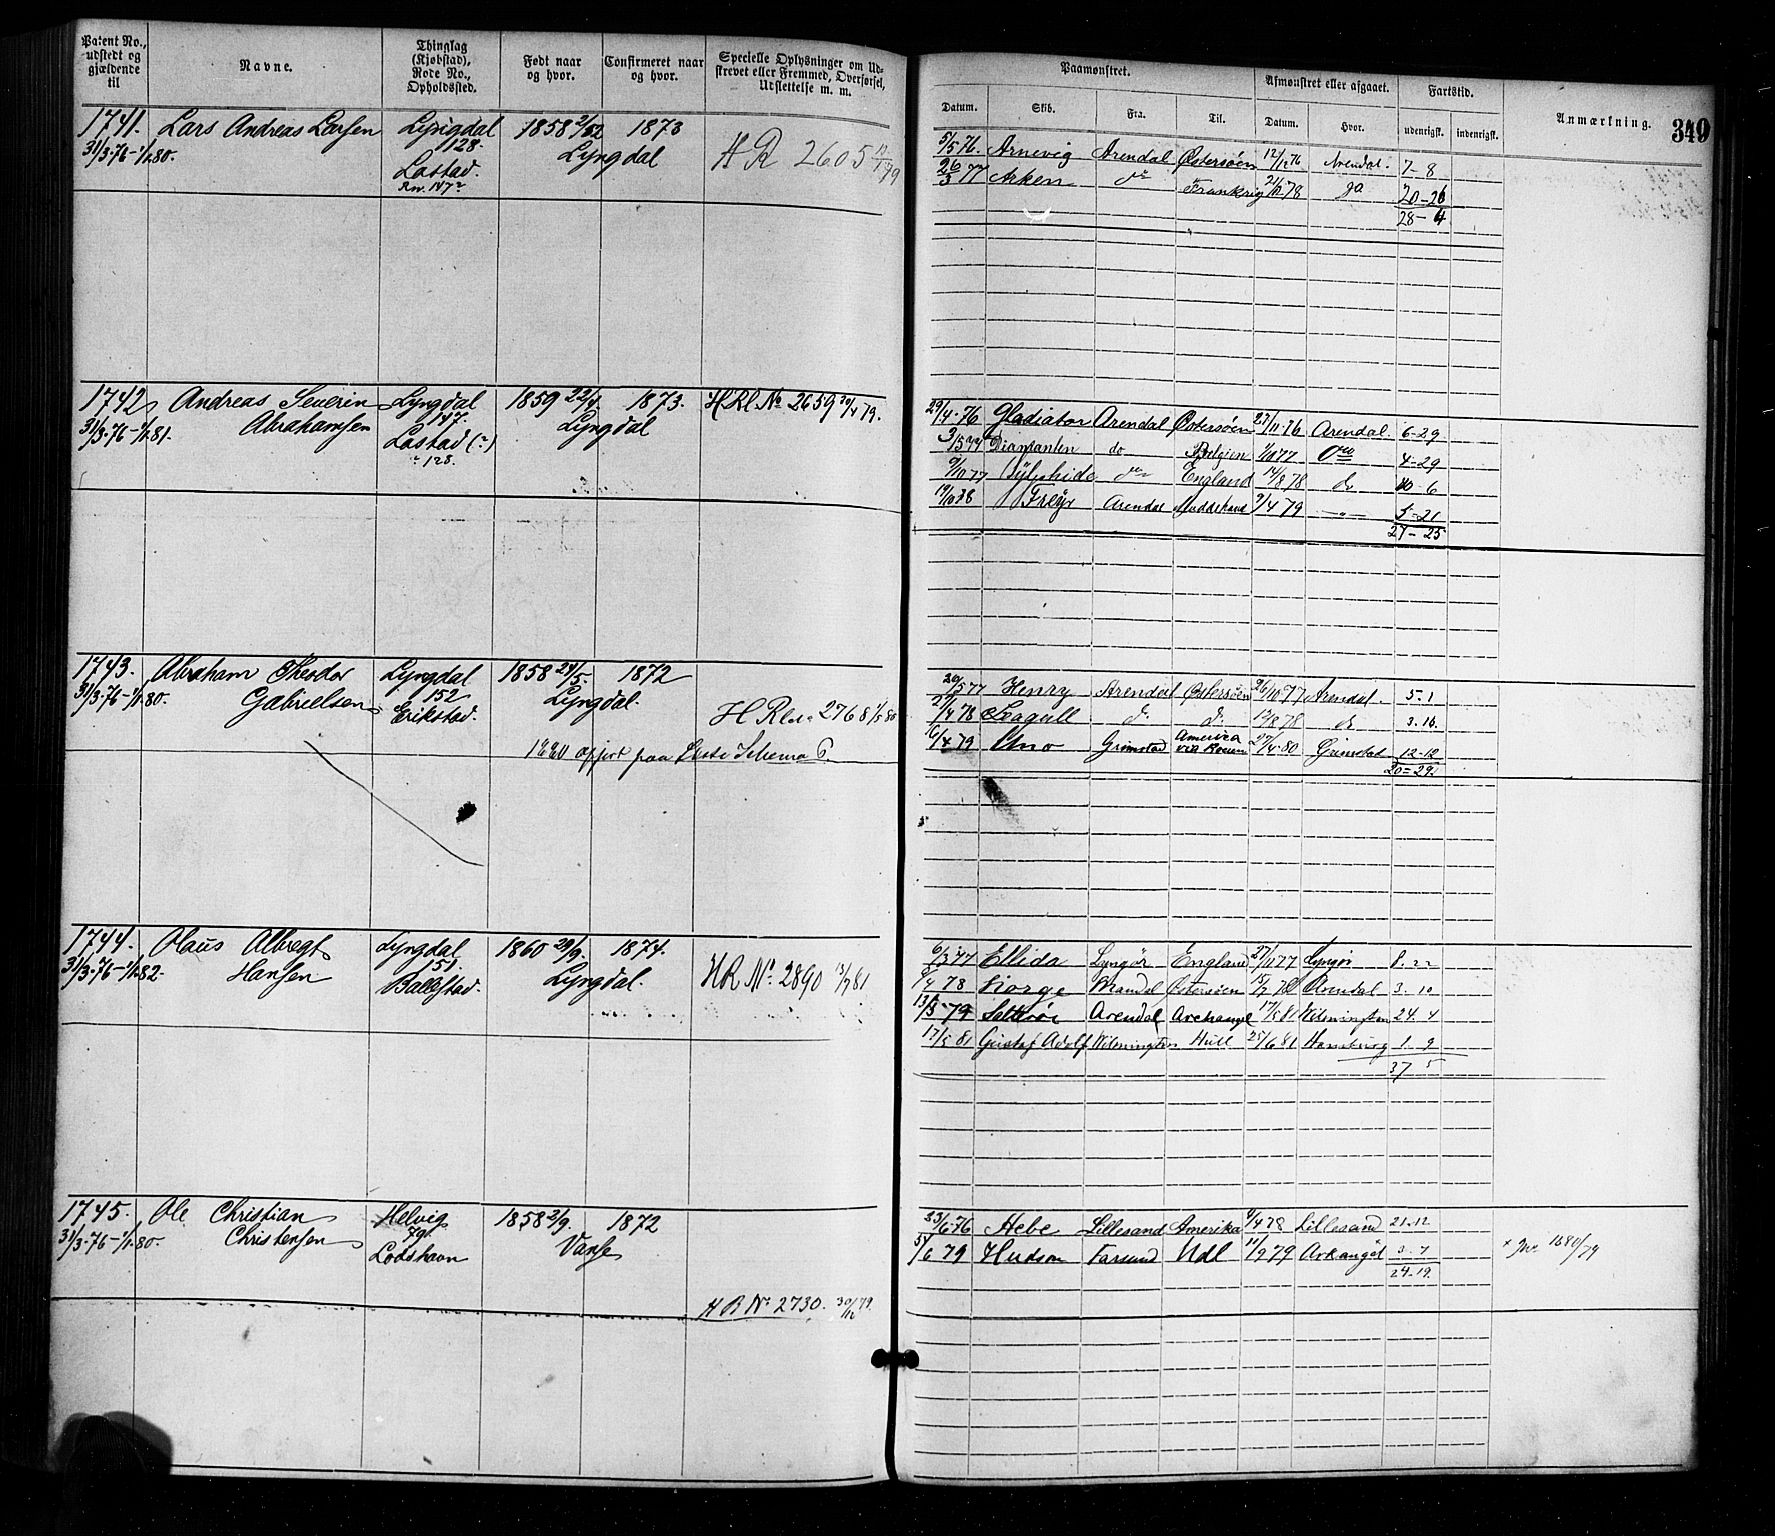 Patent No., udstedt og gjældende til
Navne.
Thinglag (Kjøbstad), Rode No., Opholdssted.
Født naar og hvor.
Confirmeret naar og hvor.
Specielle Oplysninger om Udskrevet eller Fremmed, Overførsel, Udslettelse m. m.
Paamønstret.
Afmønstret eller afgaaet.
Fartstid.
Anmærkning.
349
Datum. Skib. Fra. Til. Datum. Hvor. udenrigsk. indenrigsk.
1741. Lars Andreas Larsen Lyngdal 1858 1873
31/3-76-1/1 80. 128. Lyngdal H R 2605
Lastad.
5/5 76. Arnevig Arendal Østersøen 12/12 76 Arendal. 7-8
26/3 77 Arken do Frankrig 78 20-26
28-4
1742 Andreas Severin Lyngdal 1859 22/4 1873. HRl No 2659 79.
31/3-76-1/1 81. Abrahamsen 147. Lyngdal
Lastad (?)
128.
29/4-76 Gladiator Arendal Østersøen 27/11 76 Arendal. 6-29
Diamanten do Belgien 1/10 77 4-29
9/10 77 Sylphide England 14/8 78 do 10-6
Freyr Arendal 2/4 79 -"- 5-21
27-25
1743. Abraham Theodor Lyngdal 1858 24/5. 1872
31/3-76-1/1 80. Gabrielsen 152 Lyngdal.
Erikstad. 2768 1/5 80
1880 opført paa Schema
77 Henry Arendal Østersøen 26/10 77 Arendal. 5-1
78 Seagull do do 78 do 3-16.
6/4 79 Uno Grimstad America 27/4-80 Grimstad 12-12
20=29.
1744. Olaus Albregt Lyngdal 1860 29/9. 1874.
31/3-76-1/1 82- Hansen 151. Lyngdal. HR No 2890 13/7 81
Ballestad.
6/3 77 Ellida Lyngør England 27/11 77 Lyngør 8-22
78 Norge Mandal Østersøen 15/7 78 Arendal 3-10
79 Arendal Archangel 17/5 81 Wilmington 24-4
17/5 81 Gustaf Adolf Wilmington Hull 25/6 81 Hamburg 1-9
37 5
1745. Ole Christian Helvig 1858 2/9. 1872
31/3-76-1/1-80. Christensen 79. Vanse
Lodshavn
H R No 2730. 30/12 79.
23/6 76 Hebe Lillesand Amerika 9/4 78 Lillesand 21-12
6 79 Hudson Farsund Udl 11/9 79 Arkangel 3-7 1680/79
24-19.